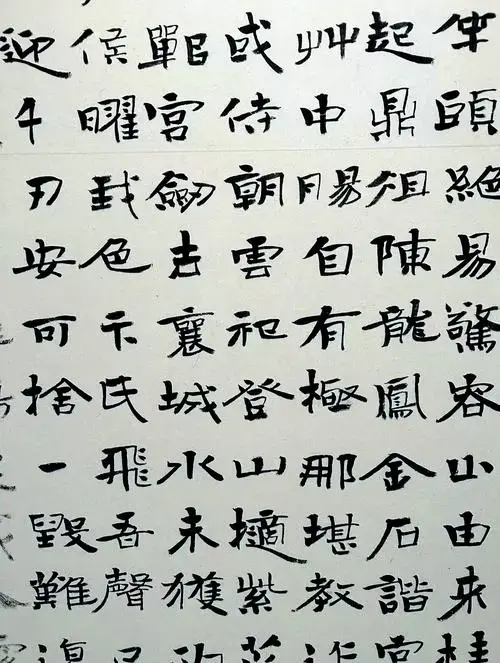 絕易驚容山由來桂
起鼎俎陳龍鳳金石諧宮
艸中自有極那堪教
或侍朝雲祀登山擿紫芝
宮劒去襄城水未獲
侯曜色卞氏飛吾聲
迎千刃安可捨一毀難復